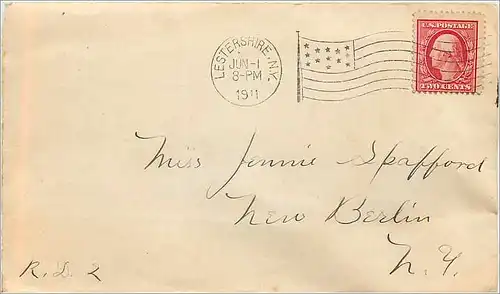 LESTERSHIRE, N.Y.
JUN-1
8-PM
1911
U.S. POSTAGE
TWO CENTS
Miss Jennie Spafford
New Berlin
N. Y.
R. D. 2